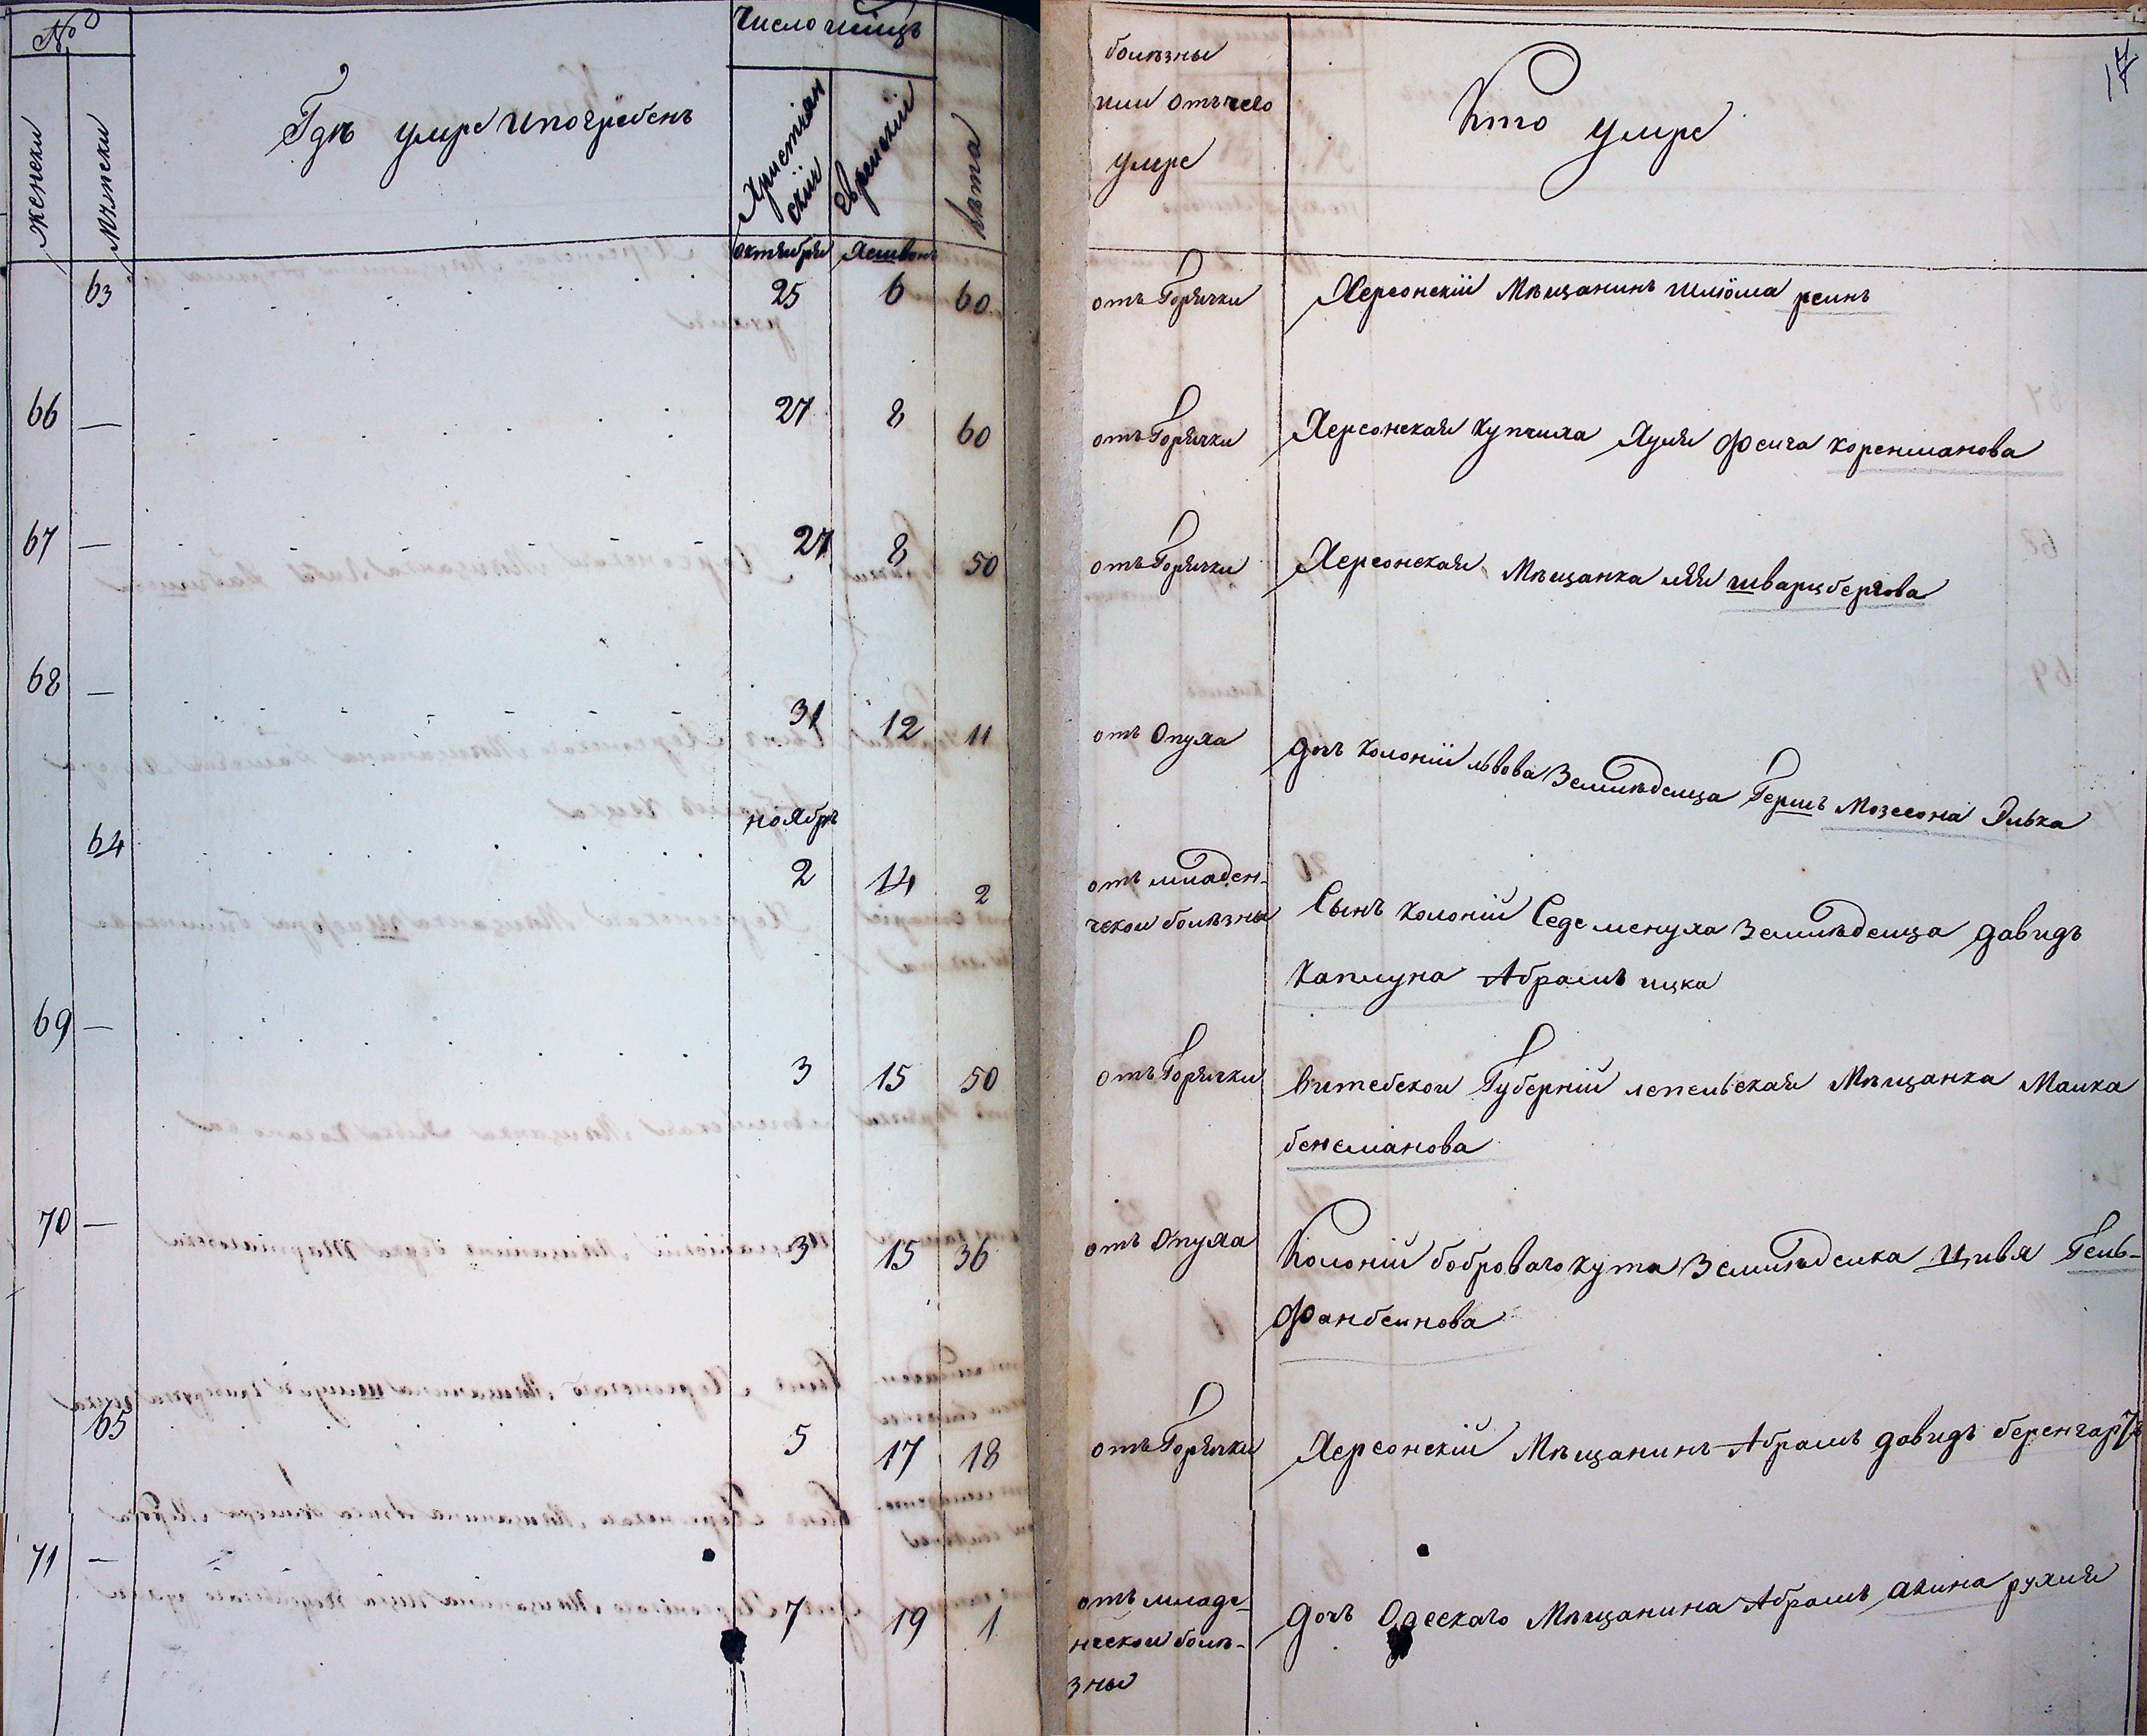 №
женски
мужески
Гдѣ умре и погребенъ
Число и мѣцъ
Христіан
скій
Еврейскій
Лѣта
болѣзны
или отъ чего
умре
Кто умре
17
октября Хешвонъ
63 25 6 60 отъ Горячки Херсонскій Мѣщанинъ шліома реинъ
66 — 27 8 60 отъ Горячки Херсонская купчиха Хуля Фейга коренманова
67 — 27 8 50 отъ Горячки Херсонская Мѣщанка лея шварцбергова
68 — 31 12 11 отъ Опуха дочь колоніи львова Земледелца Гершъ Мозесона Элька
ноябръ
64 2 14 2 отъ младен-
ческои болѣзны Сынъ колоній Седеменуха земледелца давидъ
каплуна Абрамъ ицка
69 — 3 15 50 отъ Горячки витебской Губерній лепельская Мѣщанка Малка
бенсманова
70 — 3 15 36 отъ Опуха Колоній бобровагокута Земледелка Цивя Гель-
фанбеинова
65 5 17 18 отъ Горячки Херсонскій Мѣщанинъ Абрамъ давидъ беренгартъ
71 — 7 19 1 отъ младе-
нческои болѣ-
зны дочь Одесскаго Мѣщанина Абрамъ акина рухля